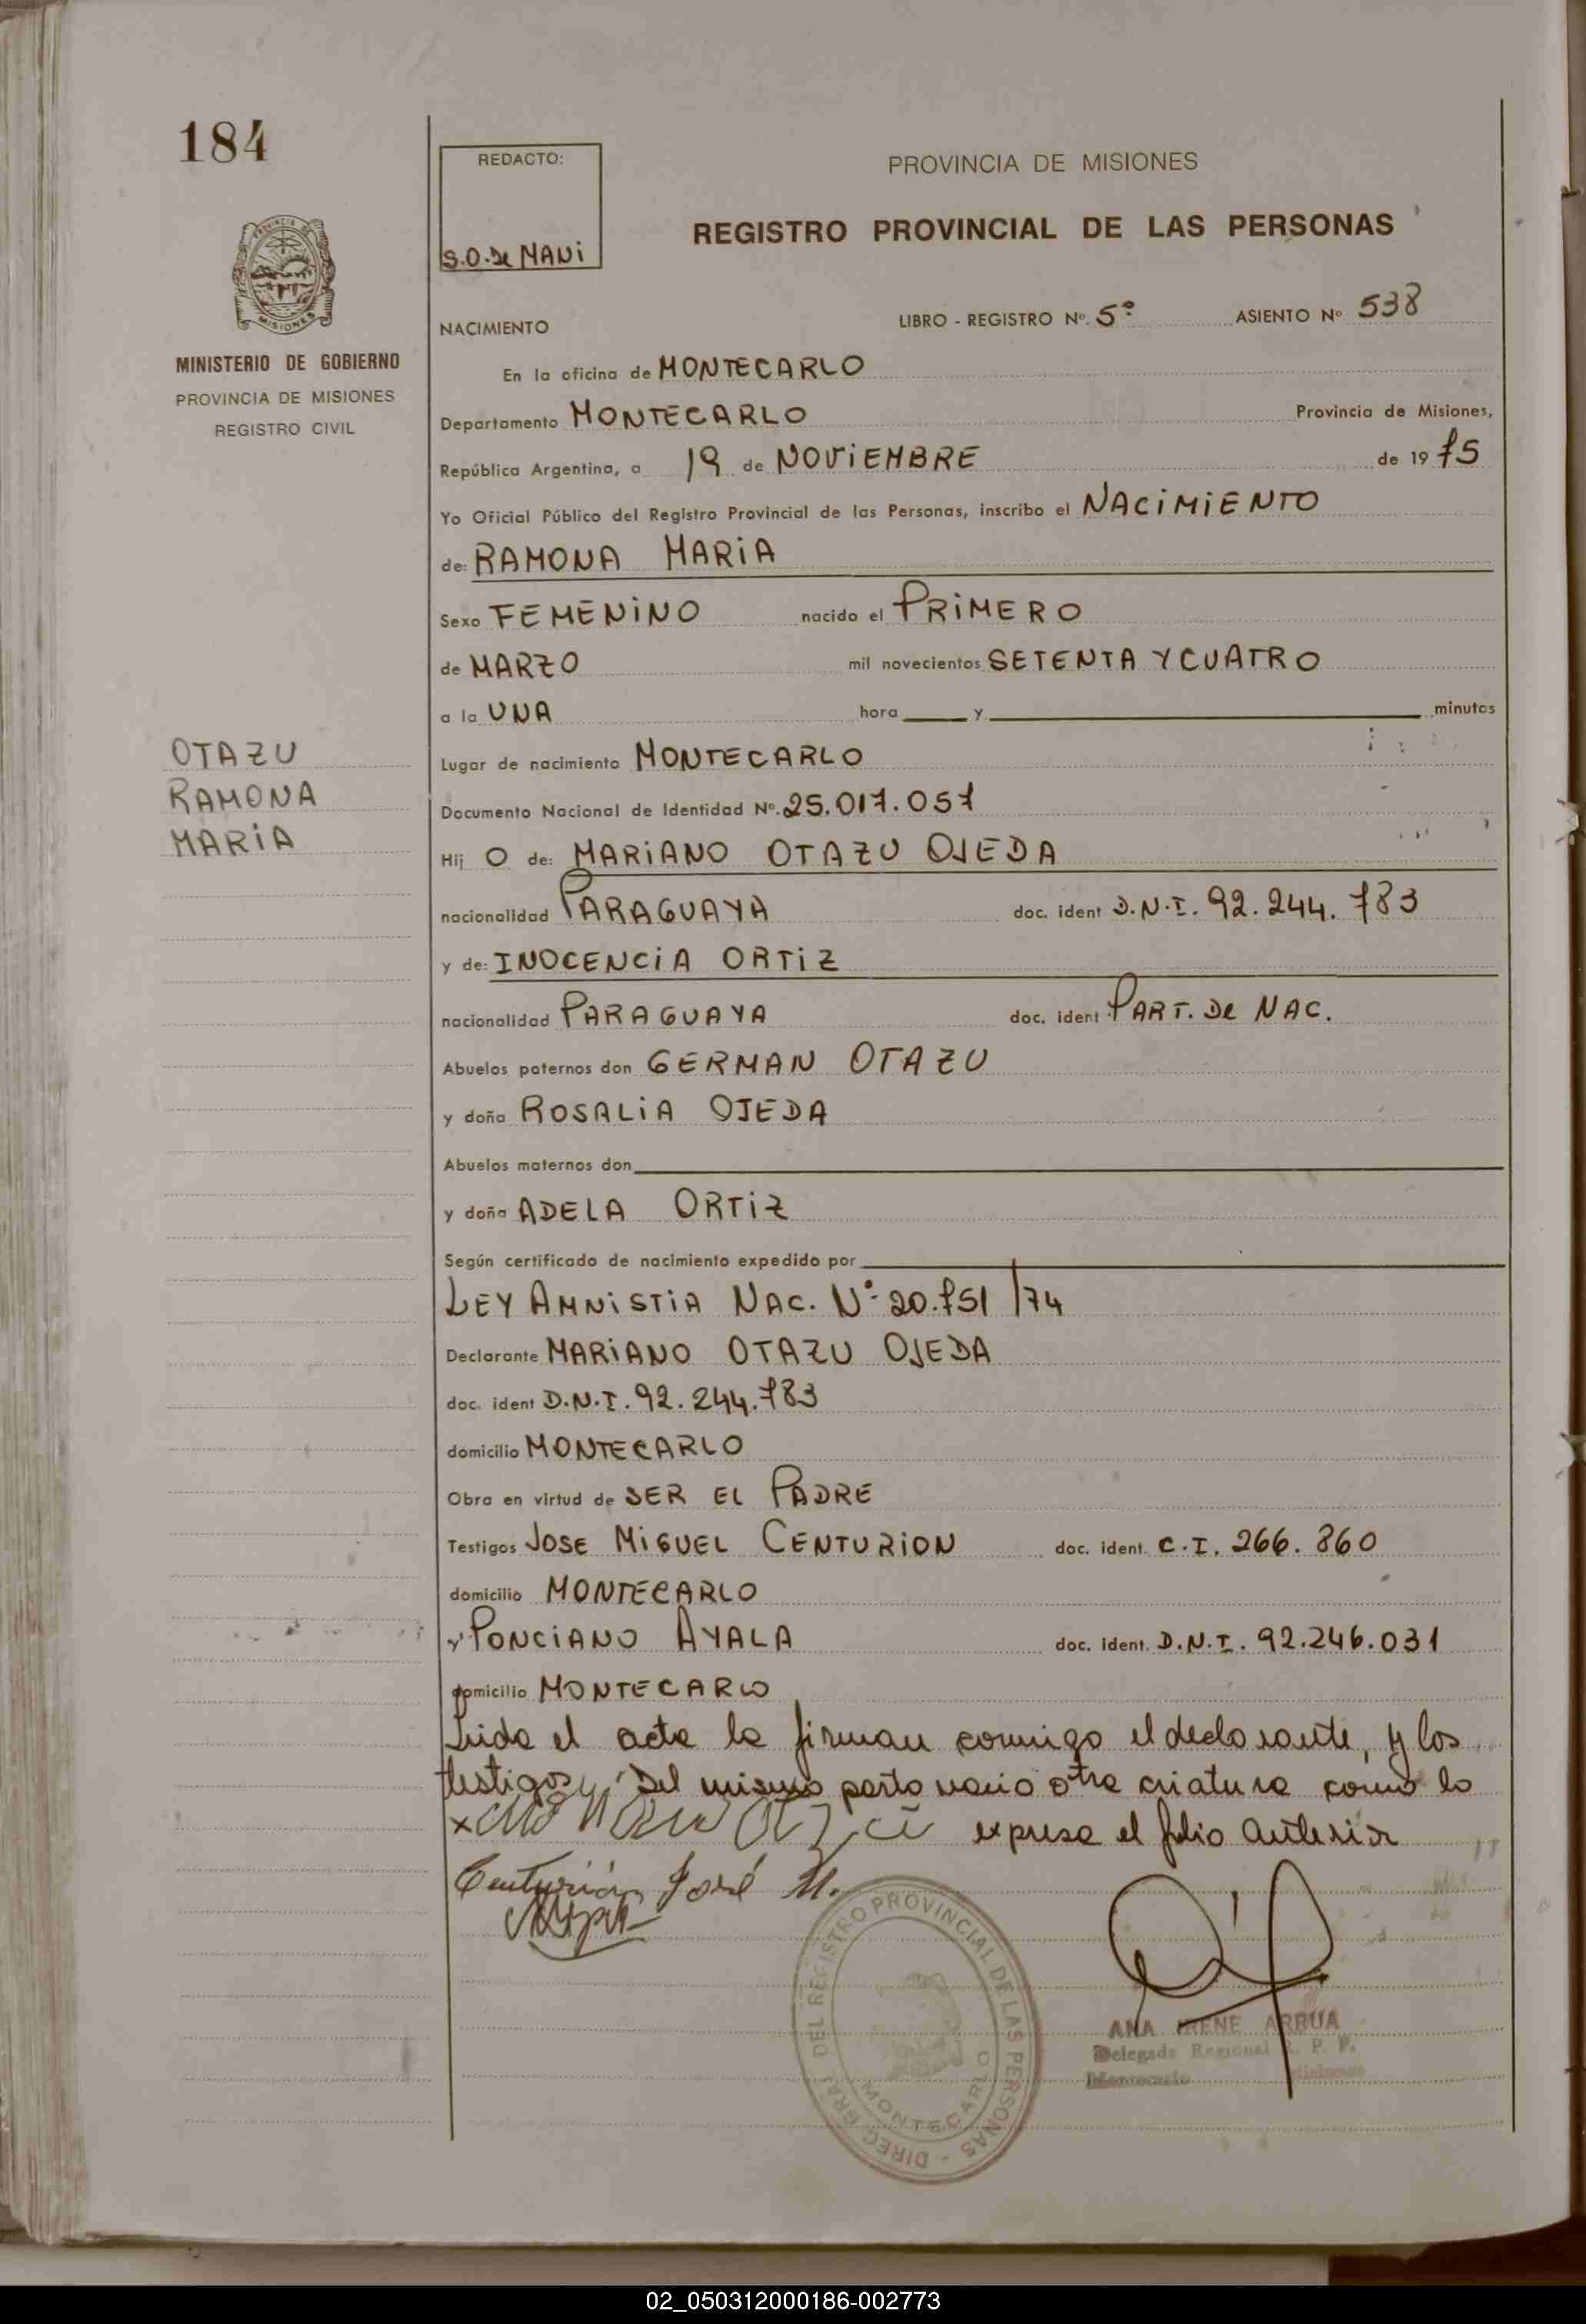 184
REDACTO:
S.O. de MAUi
PROVINCIA DE MISIONES
REGISTRO PROVINCIAL DE LAS PERSONAS
MISIONES
MINISTERIO DE GOBIERNO
PROVINCIA DE MISIONES
REGISTRO CIVIL
NACIMIENTO
LIBRO - REGISTRO Nº. 5º ASIENTO Nº 538
En la oficina de MONTECARLO
Departamento MONTECARLO Provincia de Misiones,
República Argentina, a 19 de NOViEMBRE de 19 75
Yo Oficial Público del Registro Provincial de las Personas, inscribo el NACiMiENTO
de: RAMONA MARiA
Sexo FEMENiNO nacido el PRiMERO
de MARZO mil novecientos SETENTA Y CUATRO
a la UNA hora y minutos
OTAZU
RAMONA
MARiA
Lugar de nacimiento MONTECARLO
Documento Nacional de Identidad Nº. 25.017.057
Hij O de: MARiANO OTAZU OJEDA
nacionalidad PARAGUAYA doc. ident D.N.I. 92.244.783
y de: INOCENCiA ORTiZ
nacionalidad PARAGUAYA doc. ident PART. De NAC.
Abuelos paternos don GERMAN OTAZU
y doña ROSALiA OJEDA
Abuelos maternos don
y doña ADELA ORTiZ
Según certificado de nacimiento expedido por
LEY AMNiSTiA NAC. Nº 20.751/74
Declarante MARiANO OTAZU OJEDA
doc. ident D.N.I. 92.244.783
domicilio MONTECARLO
Obra en virtud de SER EL PADRE
Testigos JOSE MiGUEL CENTURiON doc. ident. C.I. 266.860
domicilio MONTECARLO
y PONCiANO AYALA doc. ident. D.N.I. 92.246.031
domicilio MONTECARLO
Leida el acta la firman conmigo el declarante, y los
testigos. Del mismo parto nacio otra criatura como lo
expresa el folio anterior
Centurión José M.
DIREC. GRAL. DEL REGISTRO PROVINCIAL DE LAS PERSONAS -
MONTECARLO
ANA IRENE ARRUA
Delegada Regional R. P. P.
Montecarlo Misiones
02_050312000186-002773